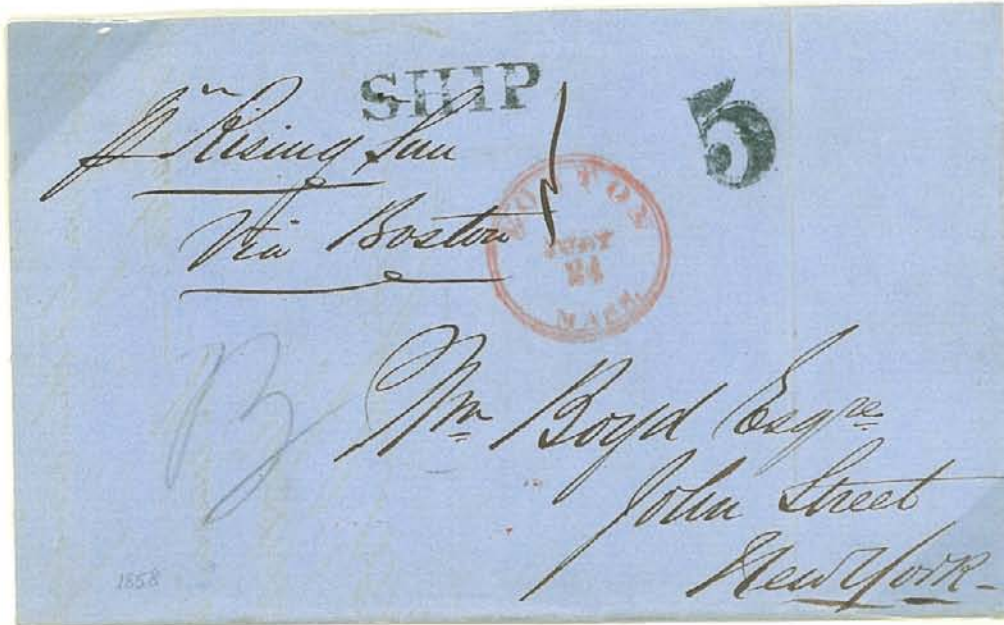 SHIP
5
pr Rising Sun
Via Boston
BOSTON
24
MASS.
Wm Boyd Esqre
John Street
New York
1858